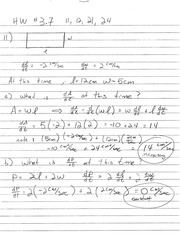 HW #3.7 11, 12, 21, 24
11)
w
l
dl/dt = -2 cm/sec dw/dt = 2 cm/sec
At this time, l=12cm w=5cm
a) what is dA/dt at this time?
A = wl ⇒ dA/dt = d/dt(wl) = dl/dt w + l dw/dt
dA/dt = 5(-2) + 12(2) = -10 + 24 = 14
note: (5cm)(-2cm/sec) + (12cm)(2cm/sec)
-10 cm²/sec + 24 cm²/sec = 14 cm²/sec
increasing
b) what is dP/dt at this time?
P = 2l + 2w dP/dt = 2 dl/dt + 2 dw/dt
dP/dt = 2(-2cm/sec) + 2(2cm/sec) = 0 cm/sec
constant